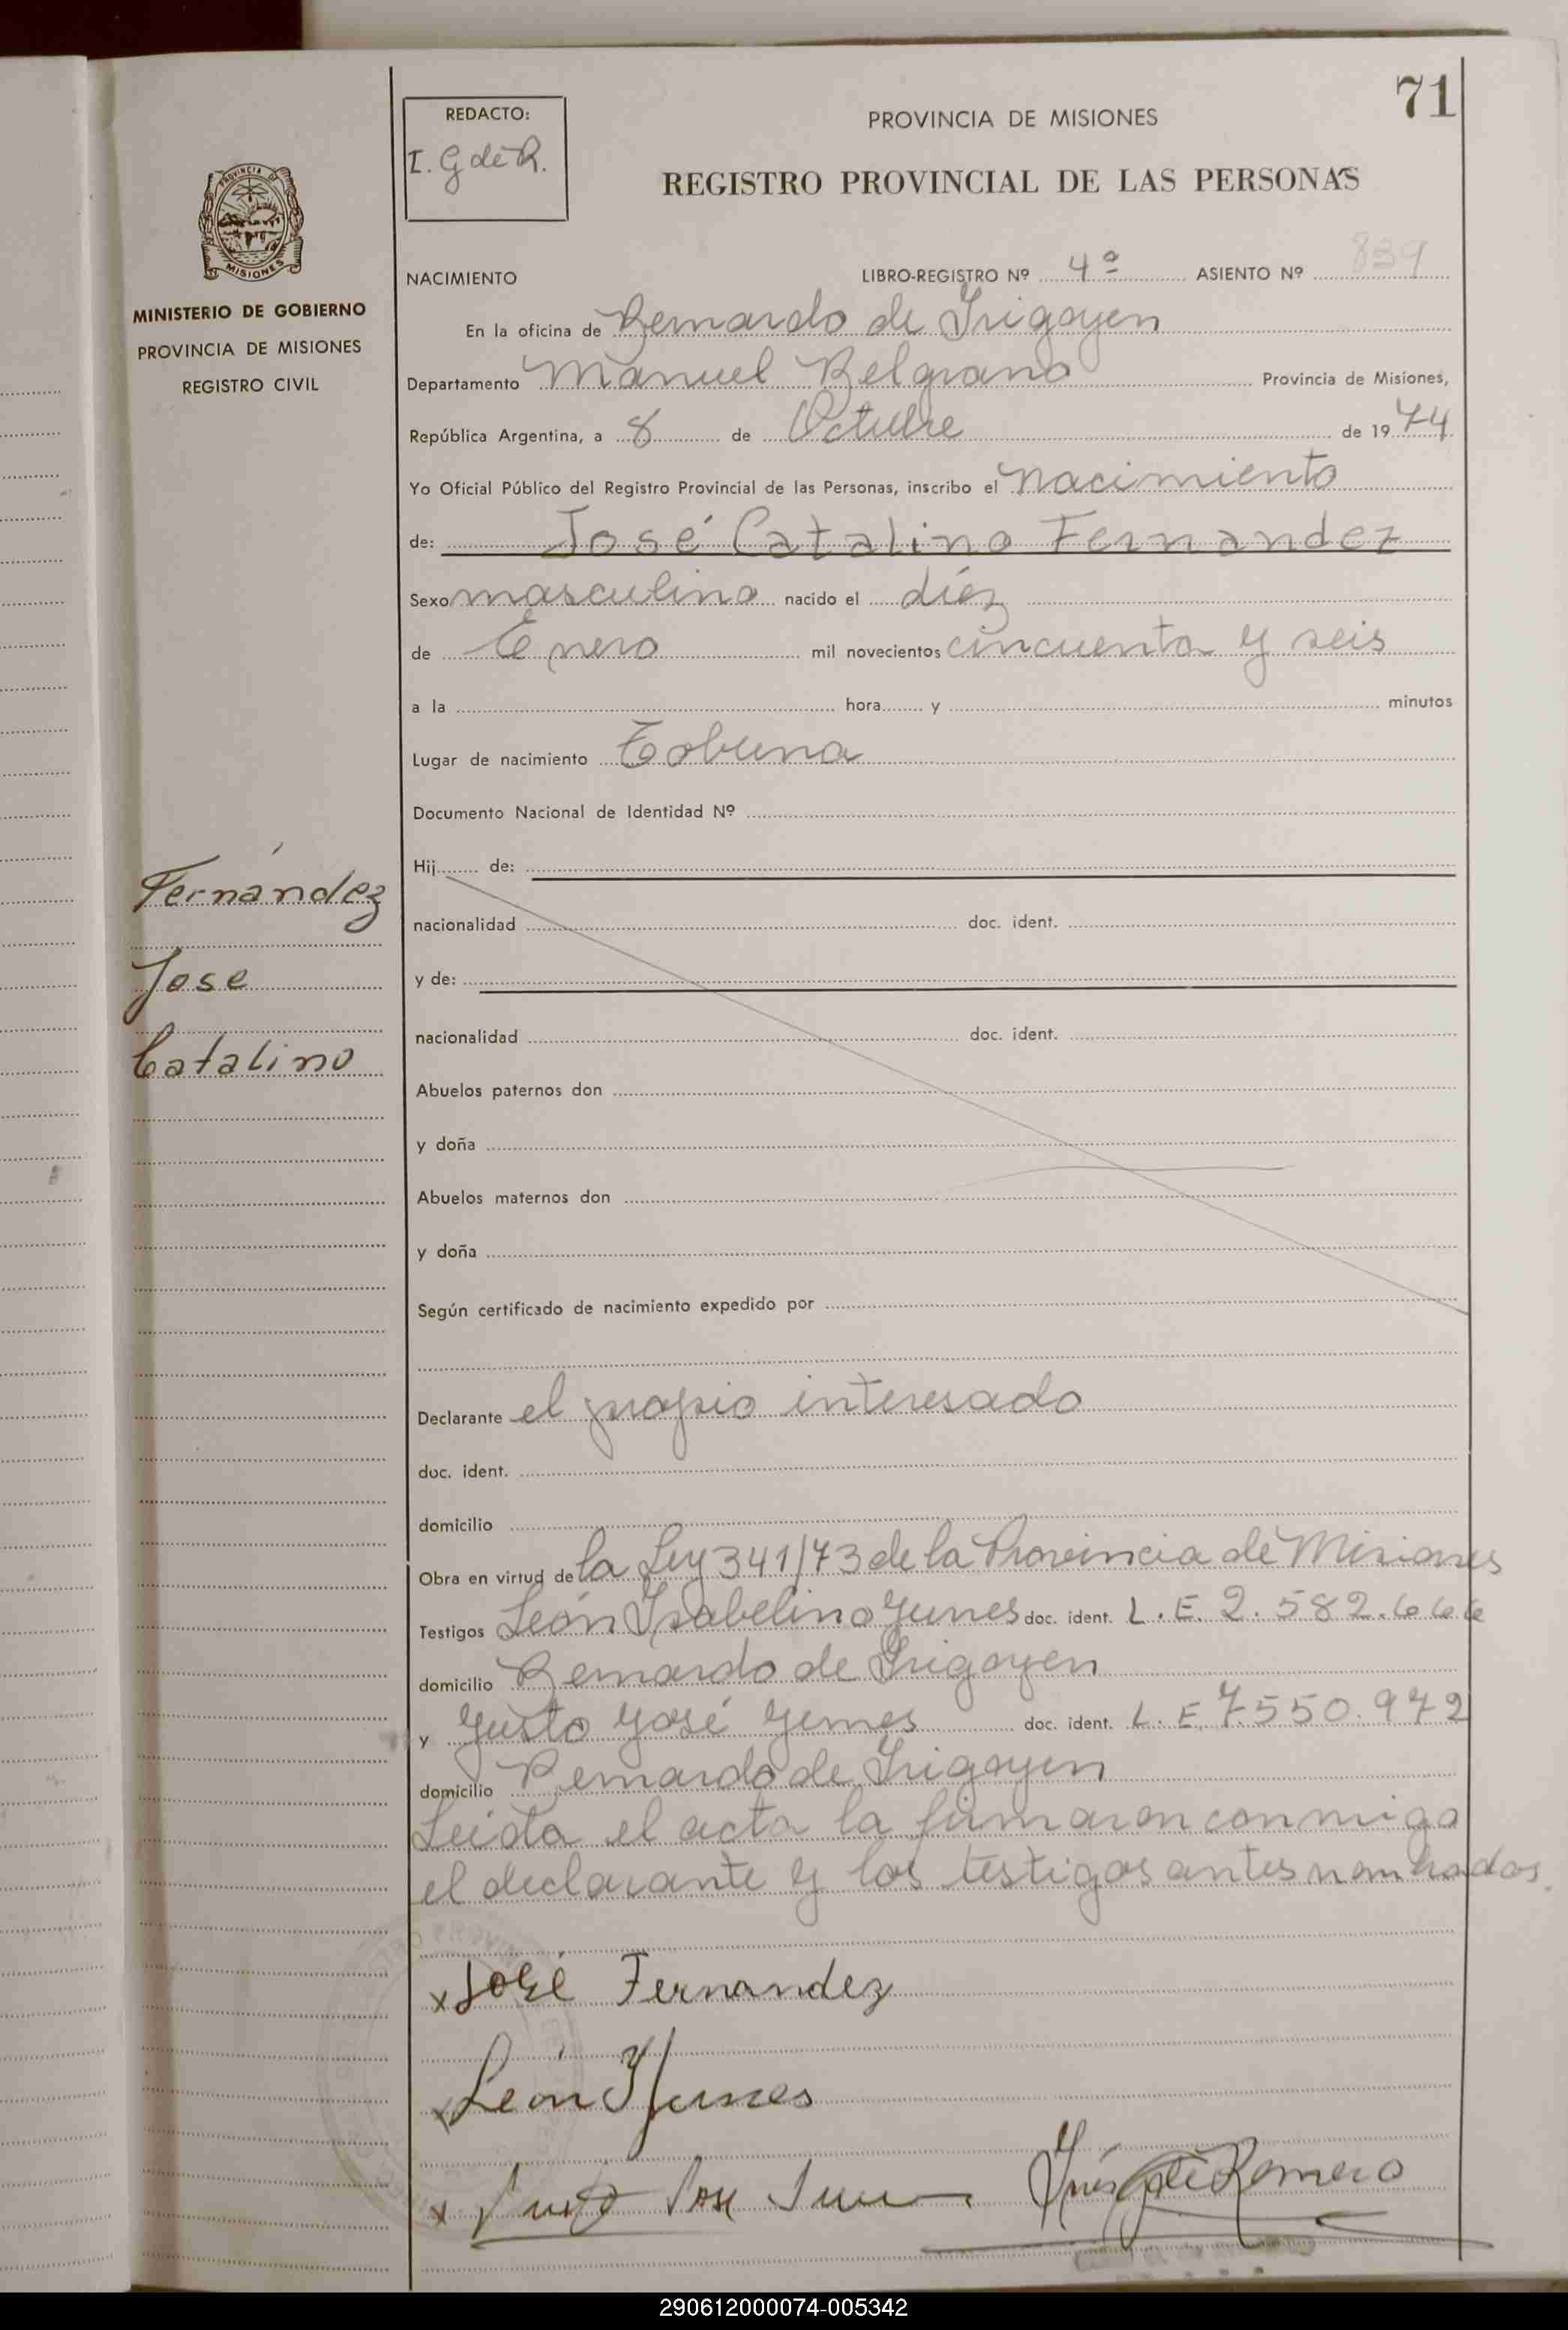 71
REDACTO:
I. G de R.
PROVINCIA DE MISIONES
REGISTRO PROVINCIAL DE LAS PERSONAS
PROVINCIA DE
MISIONES
MINISTERIO DE GOBIERNO
PROVINCIA DE MISIONES
REGISTRO CIVIL
NACIMIENTO LIBRO-REGISTRO Nº 4º ASIENTO Nº 839
En la oficina de Bernardo de Irigoyen
Departamento Manuel Belgrano Provincia de Misiones,
República Argentina, a 8 de Octubre de 1974
Yo Oficial Público del Registro Provincial de las Personas, inscribo el nacimiento
de: José Catalino Fernandez
Sexo masculino nacido el diéz
de Enero mil novecientos cincuenta y seis
a la hora y minutos
Lugar de nacimiento Tobuna
Documento Nacional de Identidad Nº
Hij de:
Fernández
nacionalidad doc. ident.
José
y de:
nacionalidad doc. ident.
Catalino
Abuelos paternos don
y doña
Abuelos maternos don
y doña
Según certificado de nacimiento expedido por
Declarante el propio interesado
doc. ident.
domicilio
Obra en virtud de la Ley 341/73 de la Provincia de Misiones
Testigos León Isabelino Yunes doc. ident. L. E. 2.582.666
domicilio Bernardo de Irigoyen
y Justo José doc. ident. L. E. 7.550.972
domicilio Bernardo de Irigoyen
Leida el acta la firmaron conmigo
el declarante y los testigos antes nombrados.
x José Fernandez
x León Yunes
x Justo José Inés G de Romero
290612000074-005342